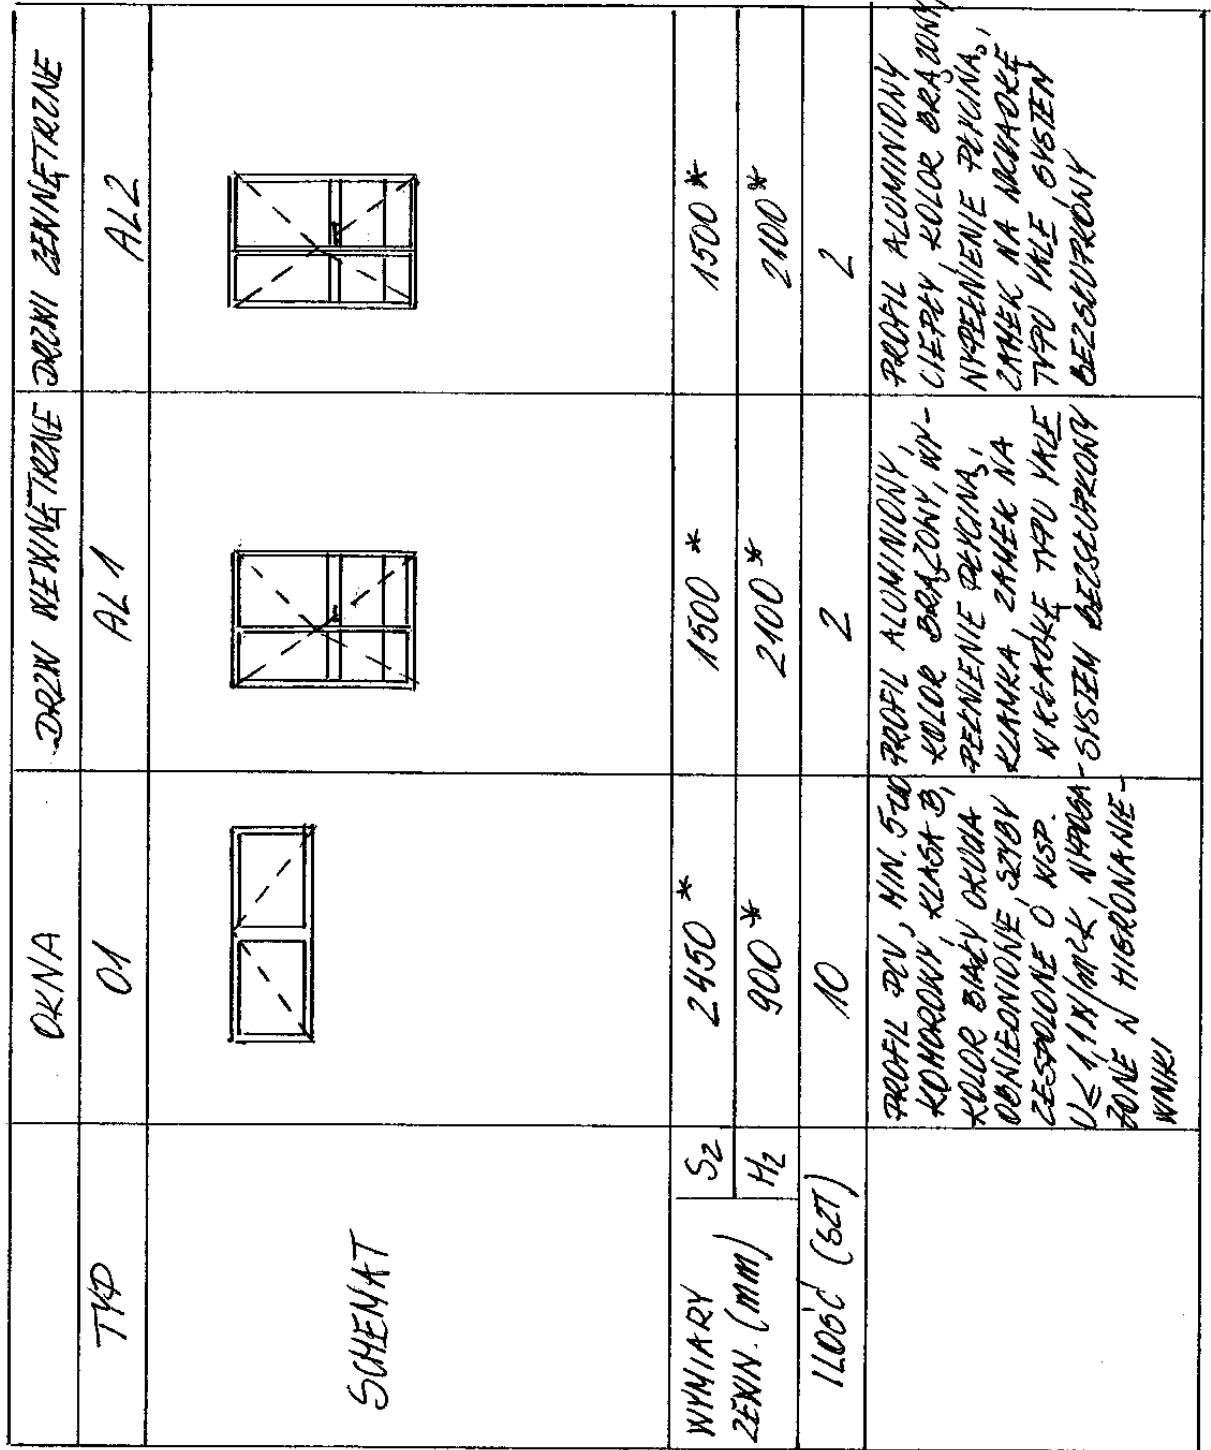 OKNA
DRZWI WEWNĘTRZNE
DRZWI ZEWNĘTRZNE
TYP
01
AL1
AL2
SCHEMAT
WYMIARY
ZEWN. (mm)
Sz
2450*
1500*
1500*
Hz
900*
2100*
2100*
ILOŚĆ (SZT)
10
2
2
PROFIL PCV, MIN. 5-CIO
KOMOROWY, KLASA B,
KOLOR BIAŁY OKUCIA
OBWIEDNIOWE, SZYBY
ZESPOLONE O WSP.
U≤1,1W/m²K, WYPOSA-
ŻONE W HIGRONAWIE-
WNIKI
PROFIL ALUMINIOWY,
KOLOR BRĄZOWY, WY-
PEŁNIENIE PŁYCINĄ,
KLAMKA, ZAMEK NA
WKŁADKĘ TYPU YALE
SYSTEM BEZSŁUPKOWY
PROFIL ALUMINIOWY
CIEPŁY, KOLOR BRĄZOWY,
WYPEŁNIENIE PŁYCINĄ,
ZAMEK NA WKŁADKĘ
TYPU YALE, SYSTEM
BEZSŁUPKOWY